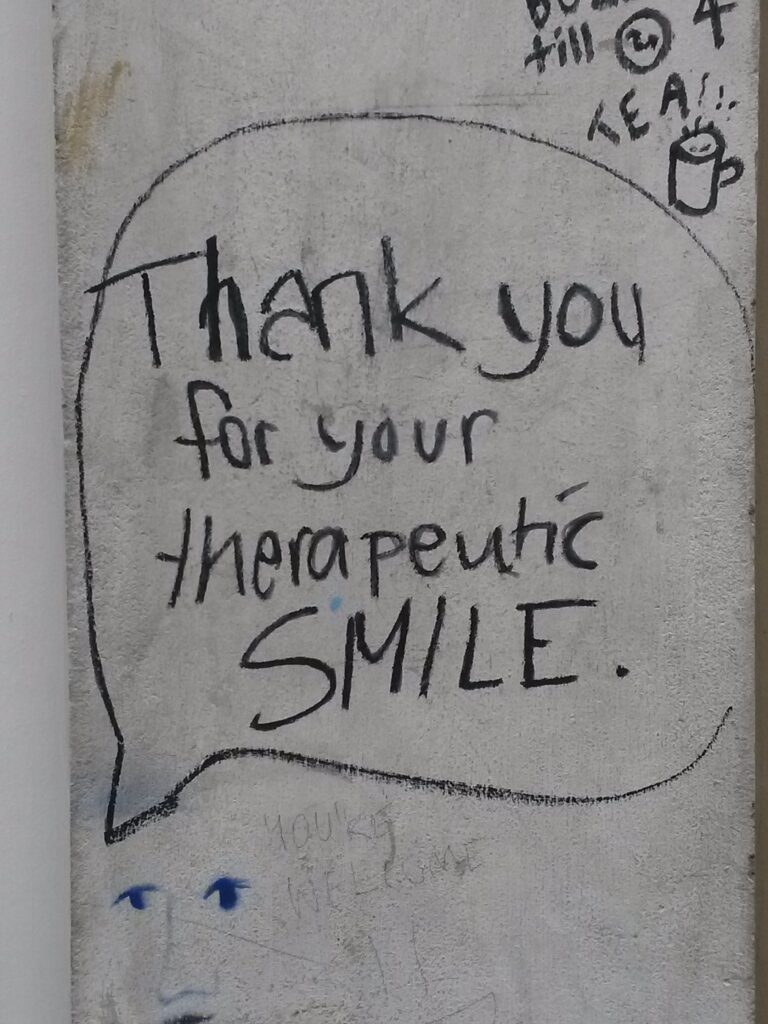 till
TEA!!!
Thank you
for your
therapeutic
SMILE.
YOU'RE
WELCOME